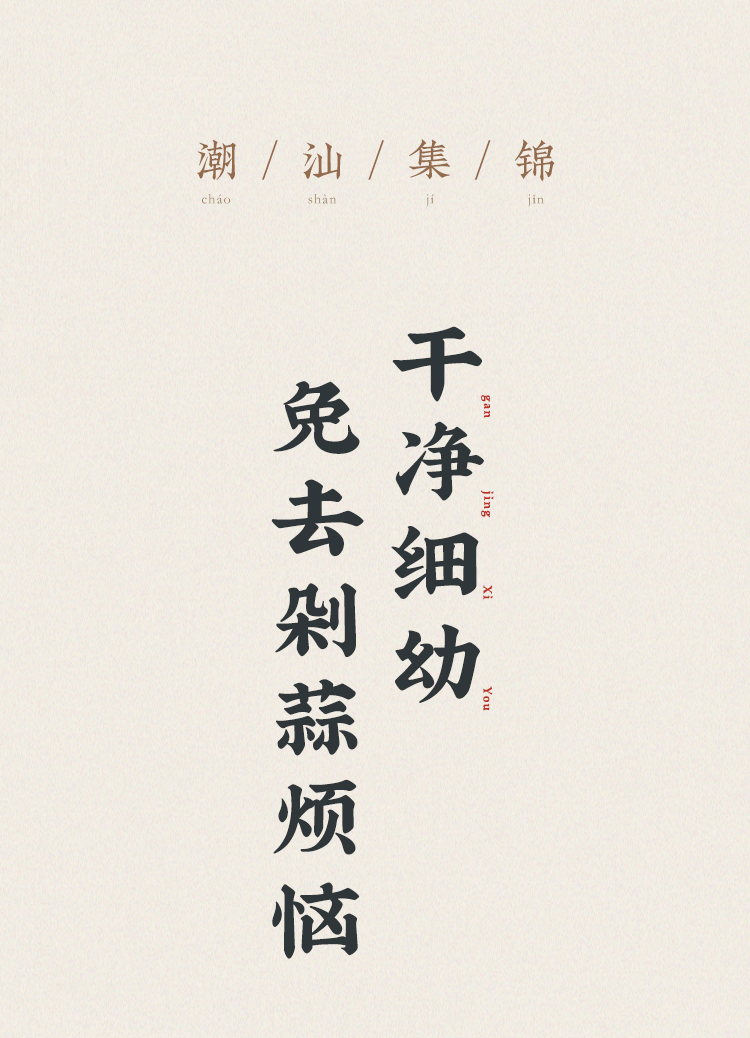 潮/汕/集/锦
cháo shàn jí jǐn
干净细幼
gan jìng Xì You
免去剁蒜烦恼